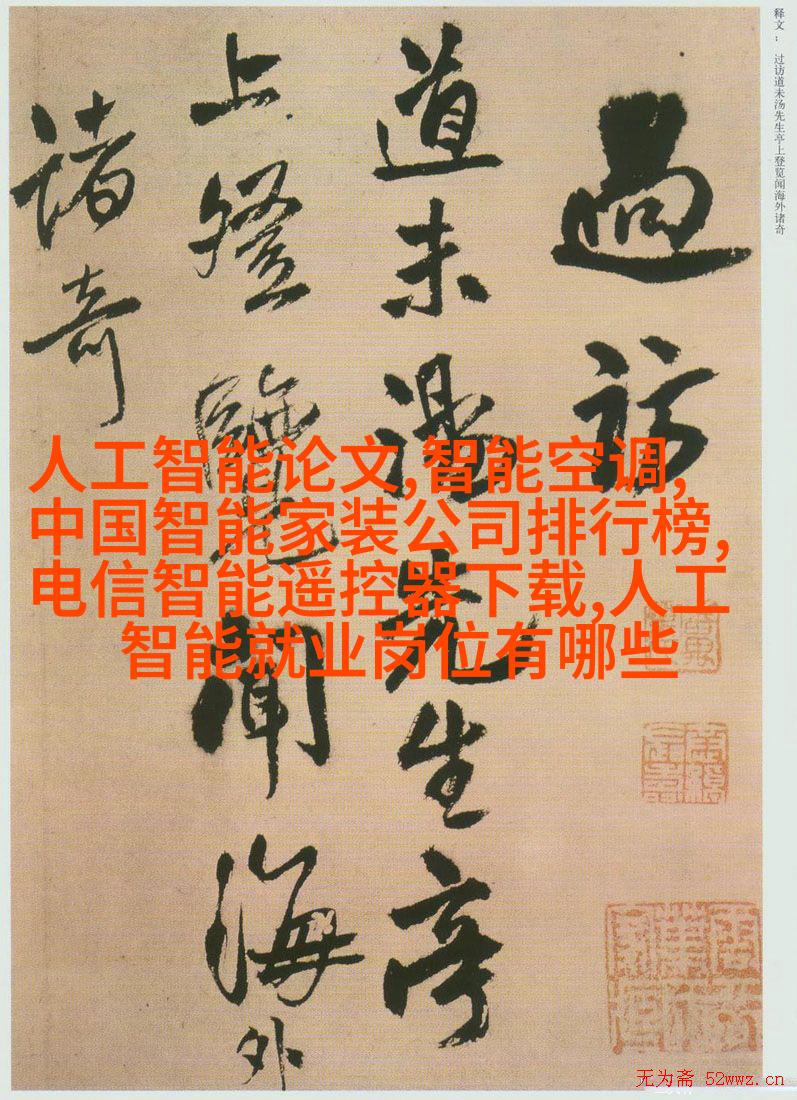 释文： 过访道未汤先生亭上登览闻海外诸奇
過訪
道未湯先生亭
上登覽聞海外
諸奇
人工智能论文,智能空调,
中国智能家装公司排行榜,
电信智能遥控器下载,人工
智能就业岗位有哪些
无为斋 52wwz.cn